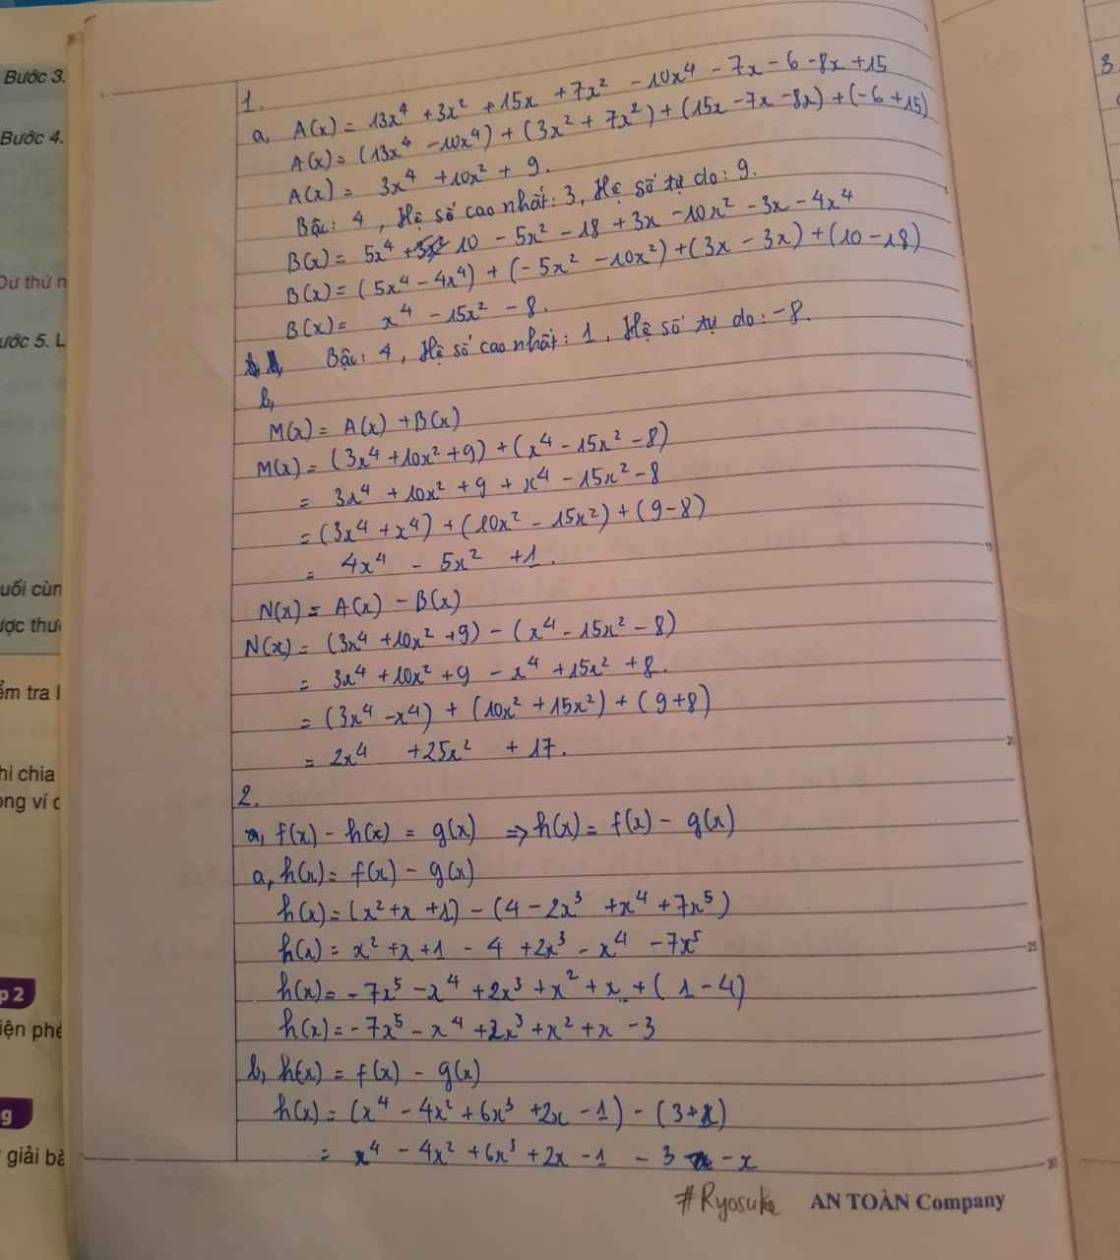 Bước 3.
Bước 4.
Dư thứ n
ước 5. L
uối cùn
ược thươ
ểm tra l
hi chia
ong ví d
p 2
iện phé
g
giải bà
1.
a, A(x) = 13x⁴ + 3x² + 15x + 7x² - 10x⁴ - 7x - 6 - 8x + 15
A(x) = (13x⁴ - 10x⁴) + (3x² + 7x²) + (15x - 7x - 8x) + (-6 + 15)
A(x) = 3x⁴ + 10x² + 9.
Bậc: 4, Hệ số cao nhất: 3, Hệ số tự do: 9.
B(x) = 5x⁴ + 10 - 5x² - 18 + 3x - 10x² - 3x - 4x⁴
B(x) = (5x⁴ - 4x⁴) + (-5x² - 10x²) + (3x - 3x) + (10 - 18)
B(x) = x⁴ - 15x² - 8.
Bậc: 4, Hệ số cao nhất: 1, Hệ số tự do: -8.
b,
M(x) = A(x) + B(x)
M(x) = (3x⁴ + 10x² + 9) + (x⁴ - 15x² - 8)
= 3x⁴ + 10x² + 9 + x⁴ - 15x² - 8
= (3x⁴ + x⁴) + (10x² - 15x²) + (9 - 8)
= 4x⁴ - 5x² + 1.
N(x) = A(x) - B(x)
N(x) = (3x⁴ + 10x² + 9) - (x⁴ - 15x² - 8)
= 3x⁴ + 10x² + 9 - x⁴ + 15x² + 8.
= (3x⁴ - x⁴) + (10x² + 15x²) + (9 + 8)
= 2x⁴ + 25x² + 17.
2.
a, f(x) - h(x) = g(x) ⇒ h(x) = f(x) - g(x)
a, h(x) = f(x) - g(x)
h(x) = (x² + x + 1) - (4 - 2x³ + x⁴ + 7x⁵)
h(x) = x² + x + 1 - 4 + 2x³ - x⁴ - 7x⁵
h(x) = -7x⁵ - x⁴ + 2x³ + x² + x + (1 - 4)
h(x) = -7x⁵ - x⁴ + 2x³ + x² + x - 3
b, h(x) = f(x) - g(x)
h(x) = (x⁴ - 4x² + 6x³ + 2x - 1) - (3 + x)
= x⁴ - 4x² + 6x³ + 2x - 1 - 3 - x
#Ryosuke AN TOÀN Company
5
10
15
20
25
30
3.